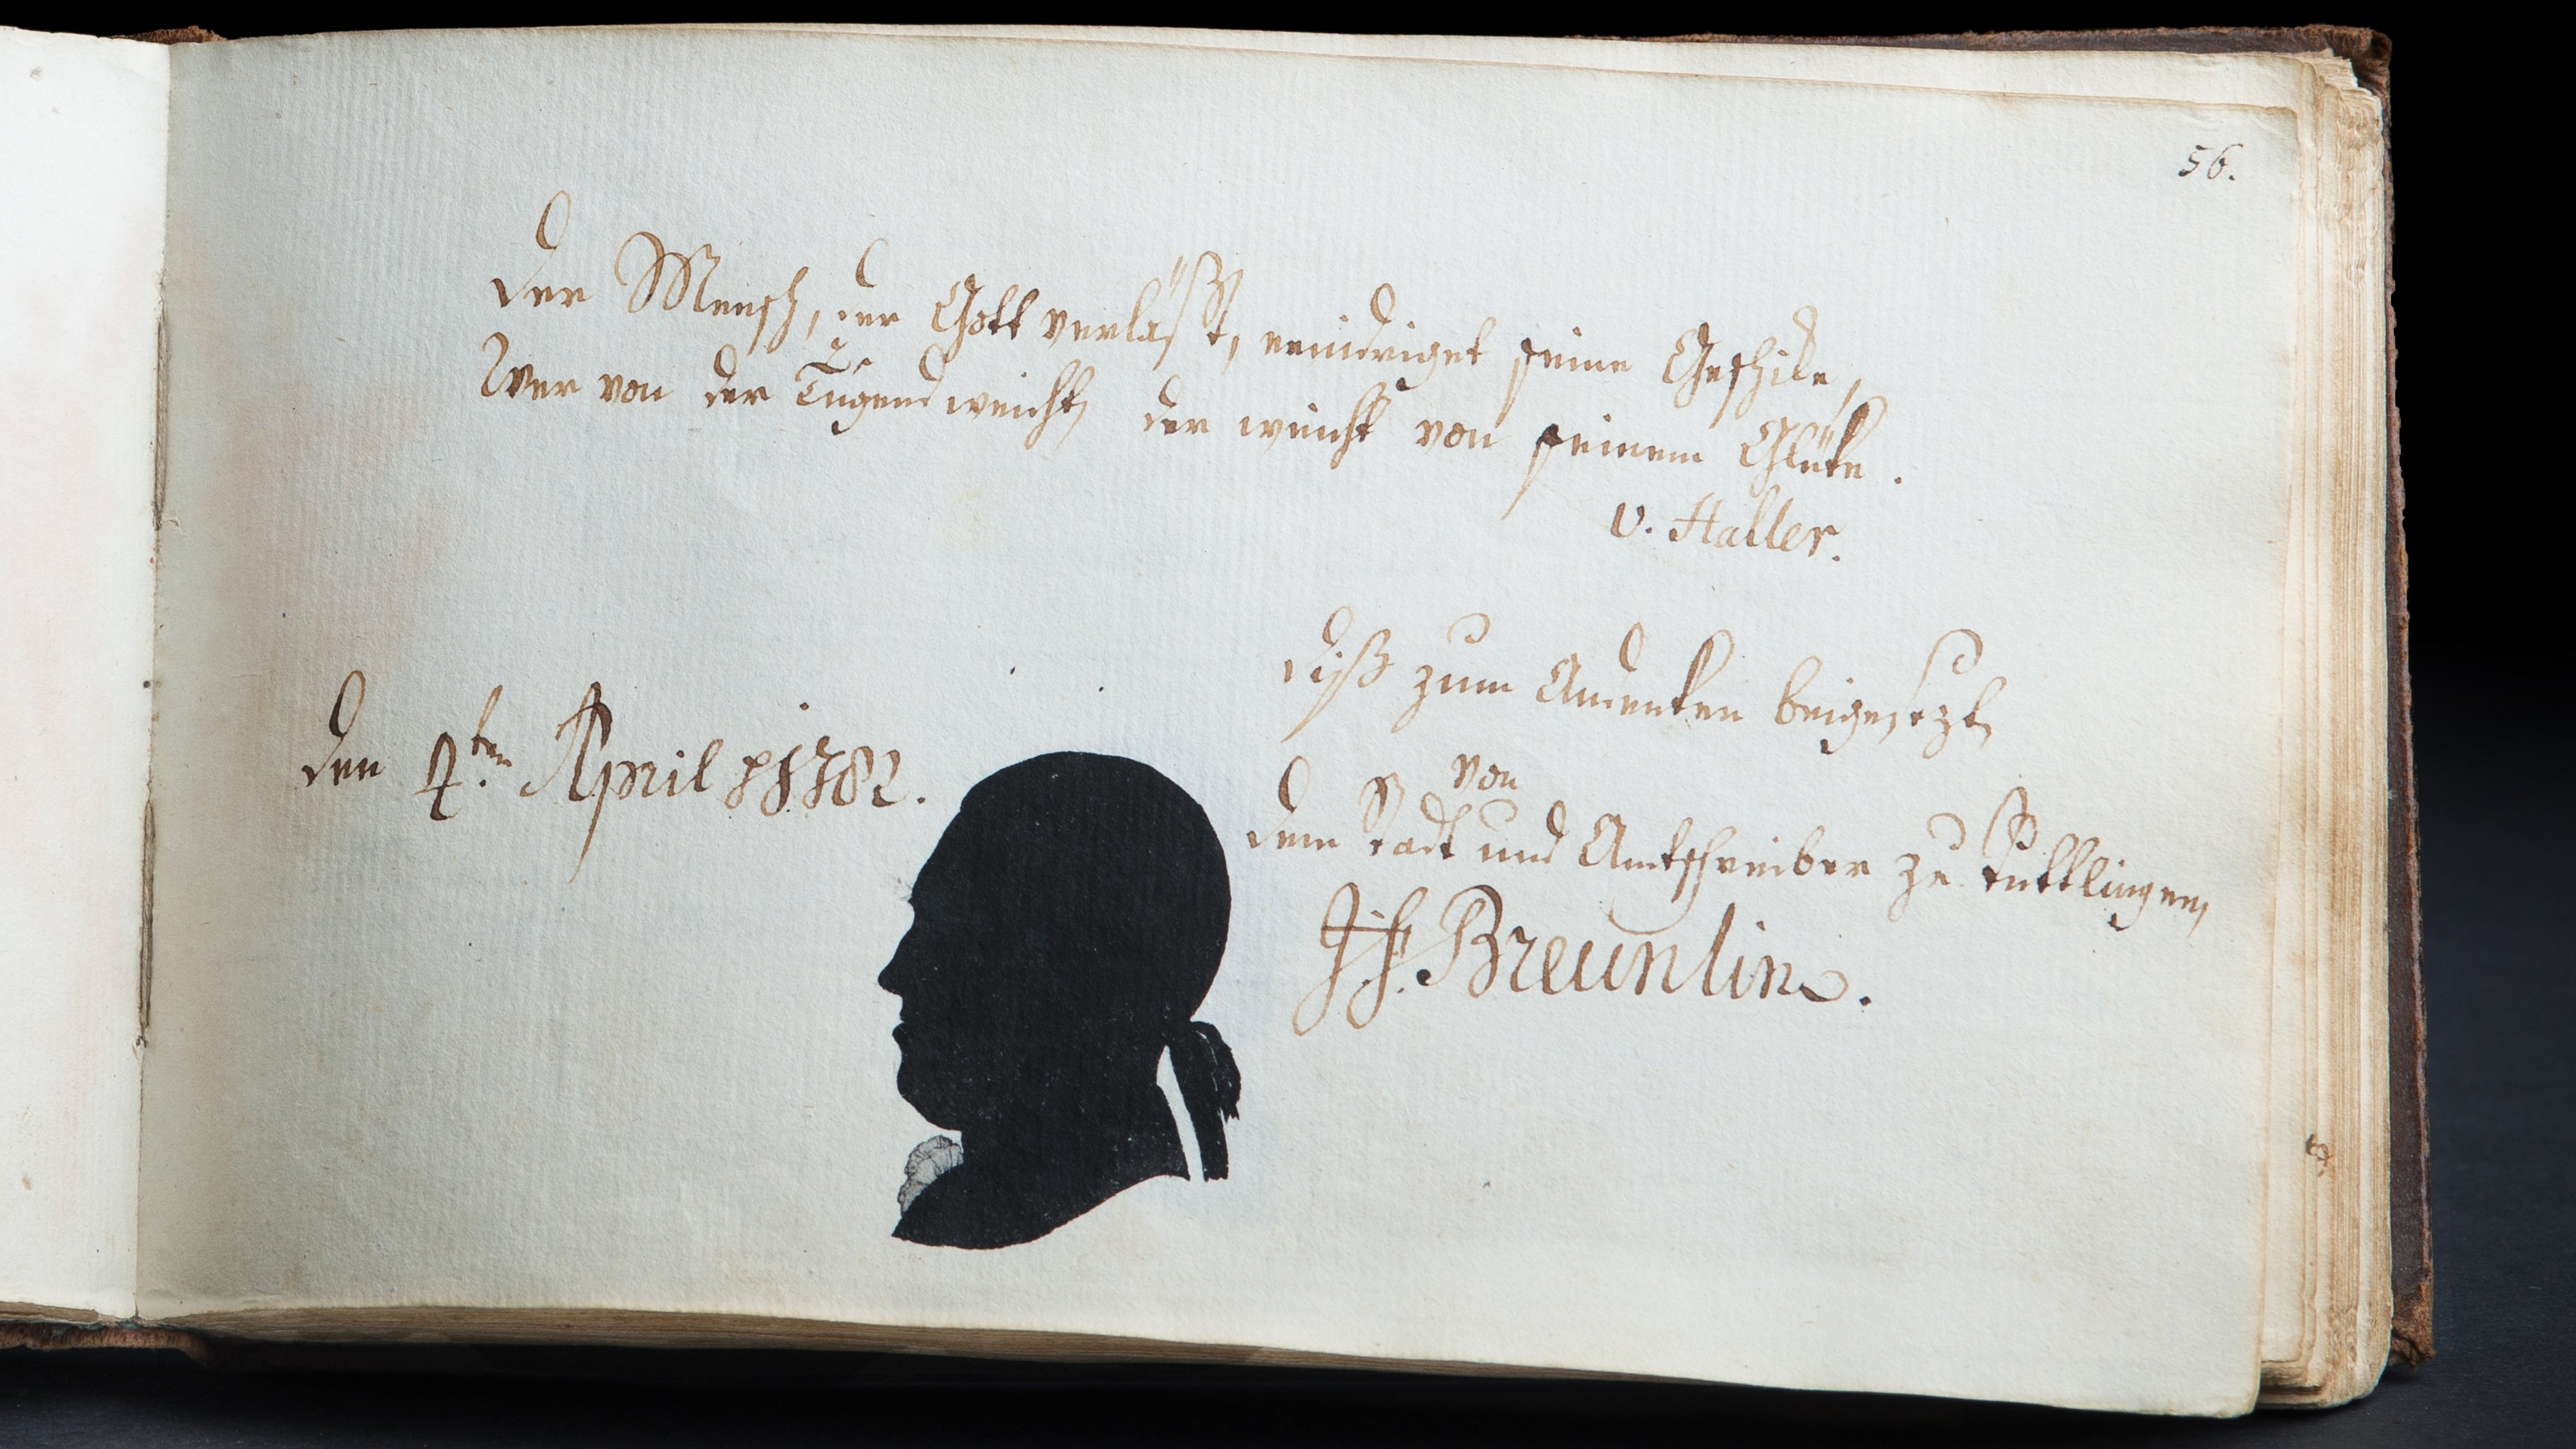 56.
Der Mensch, der Gott verläßt, erniedriget seine Geschike,
Wer von der Tugend weicht, der weicht von seinem Glüke.
v. Haller.
Diß zum Andenken beigesezt,
von
dem Stadt und Amtschreiber zu Tuttlingen,
Breunlin.
Den 4.ten April 1782.